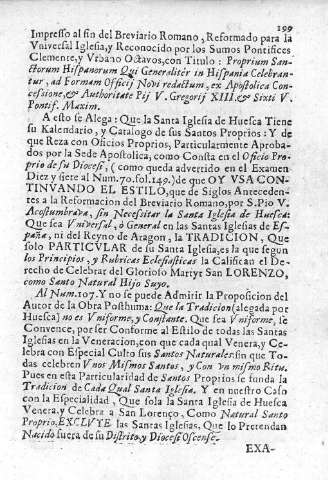 199
Impresso al fin del Breviario Romano, Reformado para la
Vniversal Iglesia, y Reconocido por los Sumos Pontifices
Clemente, y Vrbano Octavos, con Titulo: Proprium San-
ctorum Hispanorum Qui Generalitèr in Hispania Celebran-
tur, ad Formam Officij Novi redactum, ex Apostolica Con-
cessione, & Authoritate Pij V. Gregorij XIII. & Sixti V.
Pontif. Maxim.
A esto se Alega: Que la Santa Iglesia de Huesca Tiene
su Kalendario, y Catalogo de sus Santos Proprios: Y de
que Reza con Oficios Proprios, Particularmente Aproba-
dos por la Sede Apostolica, como Consta en el Oficio Pro-
prio de su Diocesi, (como queda advertido en el Examen
Diez y siete al Num. 70. fol. 149.) de que OY VSA CON-
TINVANDO EL ESTILO, que de Siglos Anteceden-
tes a la Reformacion del Breviario Romano, por S. Pio V.
Acostumbrava, sin Necessitar la Santa Iglesia de Huesca:
Que sea Vniversal, o General en las Santas Iglesias de Es-
paña, ni del Reyno de Aragon, la TRADICION, Que
solo PARTICVLAR de su Santa Iglesia, es la que segun
los Principios, y Rubricas Eclesiasticas la Califican el De-
recho de Celebrar del Glorioso Martyr San LORENZO,
como Santo Natural Hijo Suyo.
Al Num. 107. Y no se puede Admirir la Proposicion del
Autor de la Obra Posthuma: Que la Tradicion (alegada por
Huesca) no es Vniforme, y Constante. Que sea Vniforme, se
Convence, por ser Conforme al Estilo de todas las Santas
Iglesias en la Veneracion, con que cada qual Venera, y Ce-
lebra con Especial Culto sus Santos Naturales: sin que To-
das celebren Vnos Mismos Santos, y Con vn mismo Ritu.
Pues en esta Particularidad de Santos Proprios se funda la
Tradicion de Cada Qual Santa Iglesia. Y en nuestro Caso
con la Especialidad, Que sola la Santa Iglesia de Huesca
Venera, y Celebra a San Lorenço, Como Natural Santo
Proprio. EXCLVYE las Santas Iglesias, Que lo Pretendan
Nacido fuera de su Distrito, y Diocesi Oscense.
EXA-